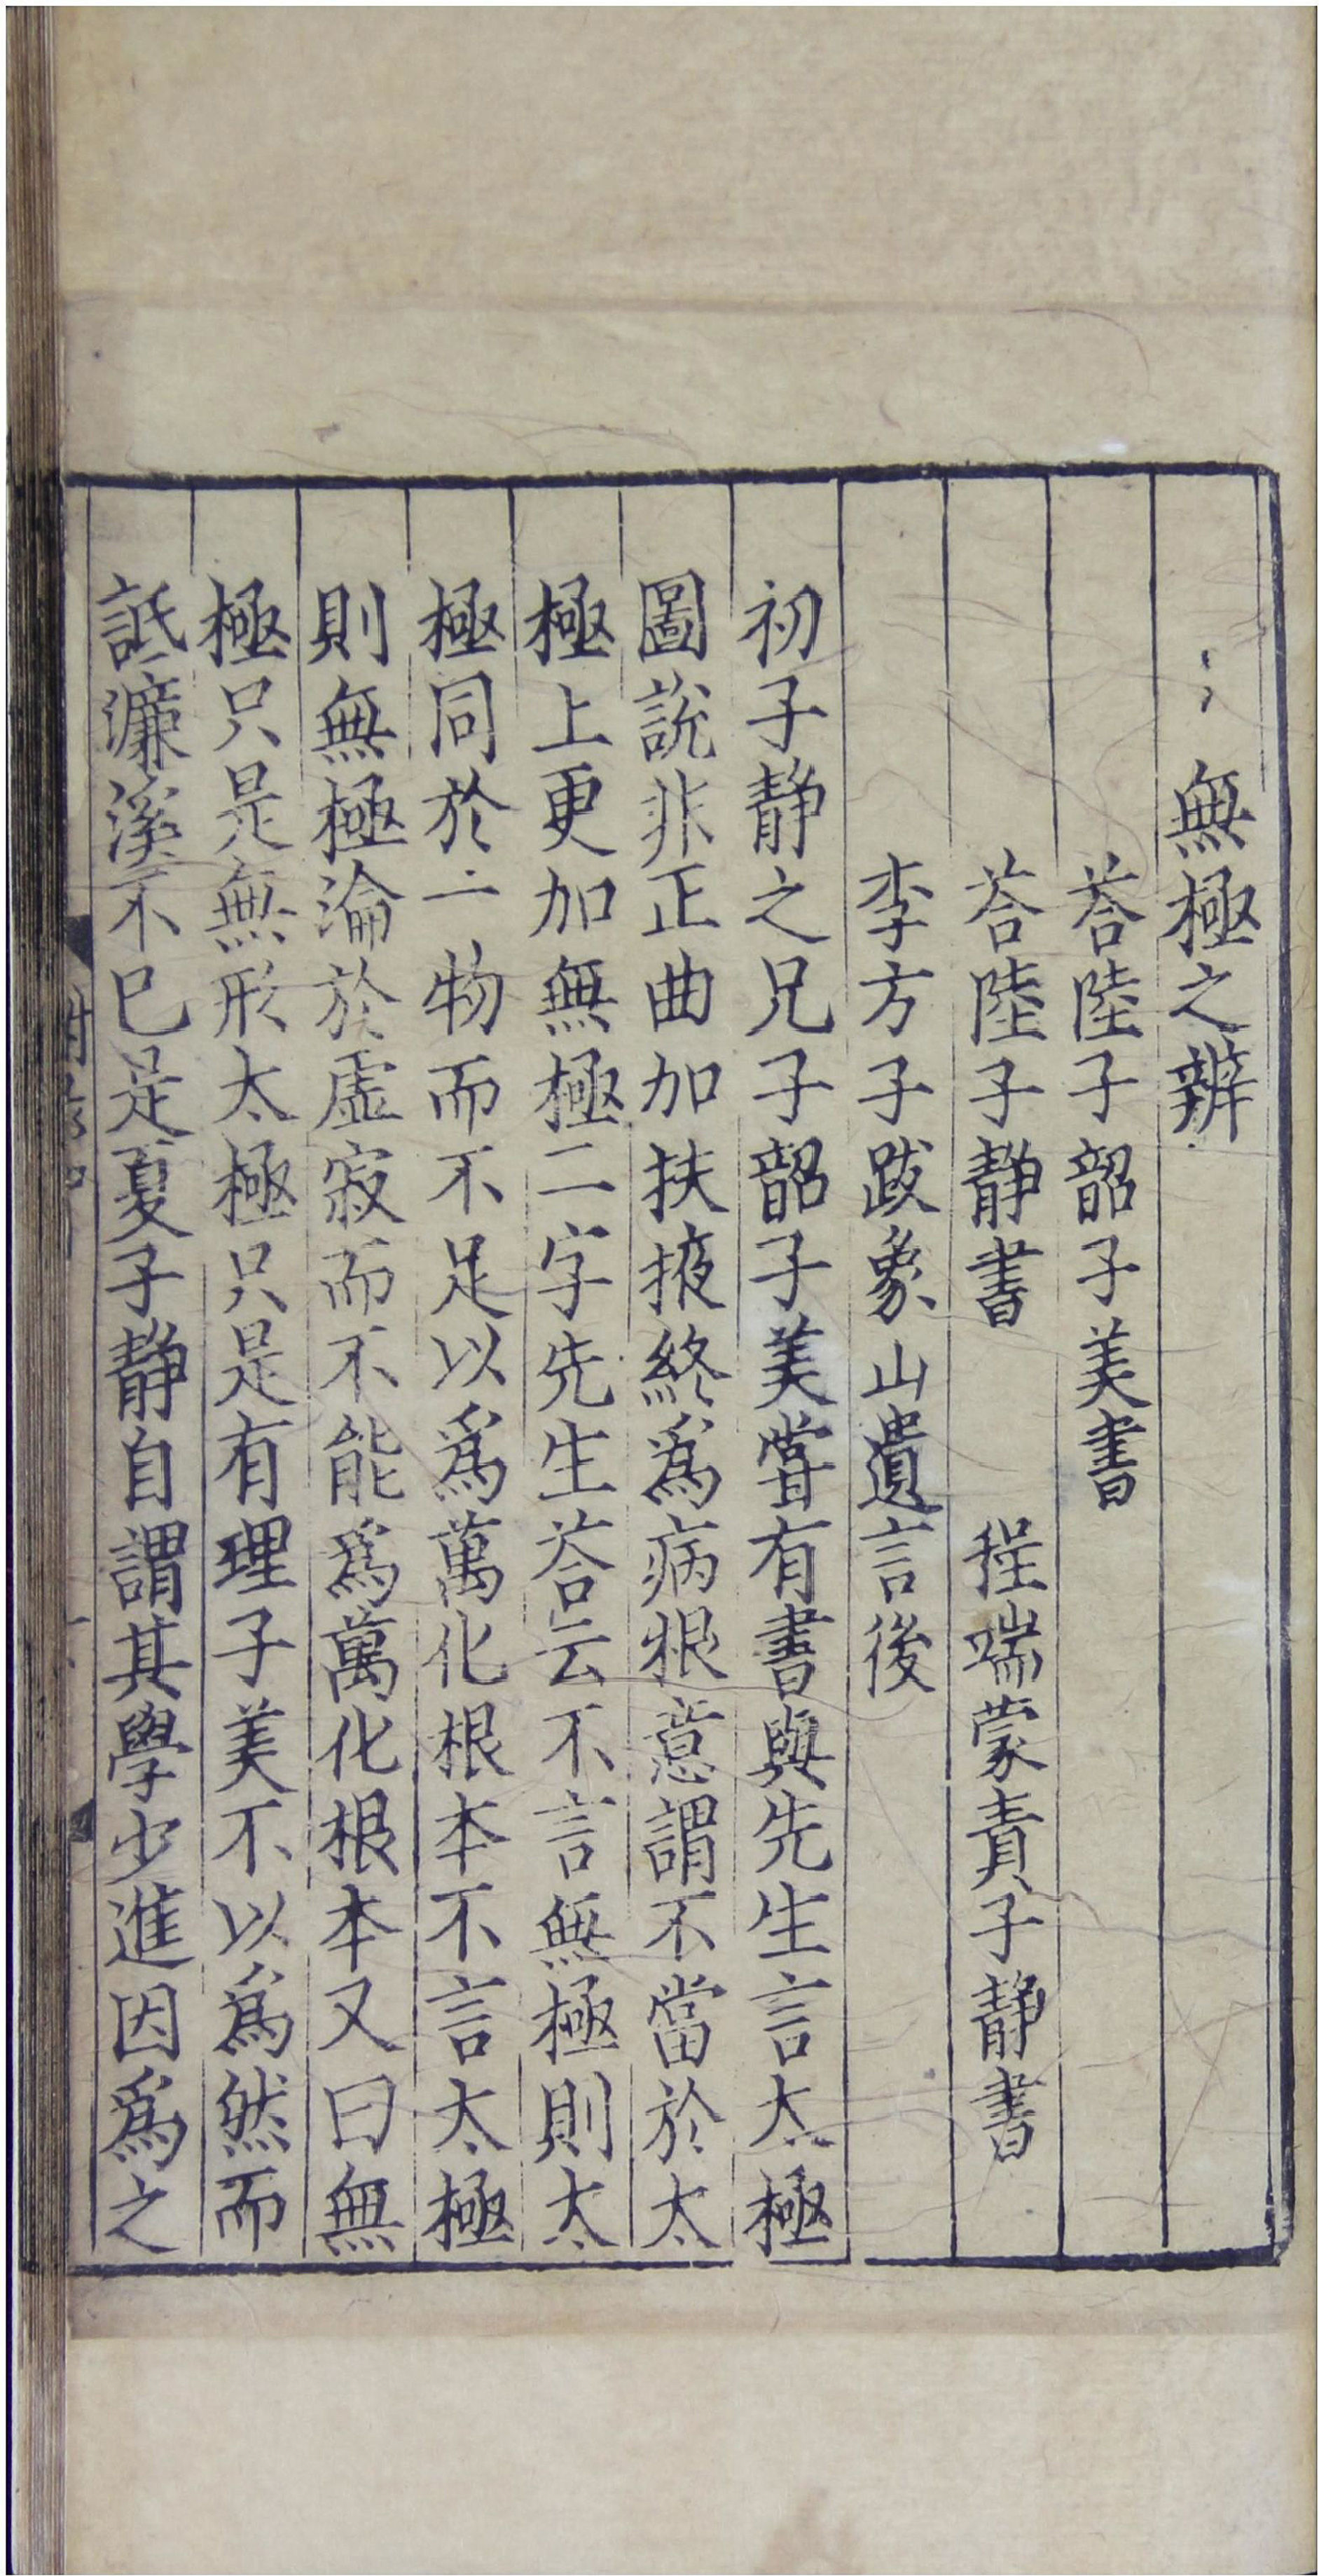 無極之辨
荅陸子韶子美書
荅陸子静書 程端蒙責子静書
李方子跋象山遺言後
初子静之兄子韶子美甞有書與先生言太極
圖説非正曲加扶掖終爲病根意謂不當於太
極上更加無極二字先生荅云不言無極則太
極同於一物而不足以爲萬化根本不言太極
則無極淪於虚寂而不能爲萬化根本又曰無
極只是無形太極只是有理子美不以爲然而
詆濓溪不已足夏子静自謂其學少進因爲之